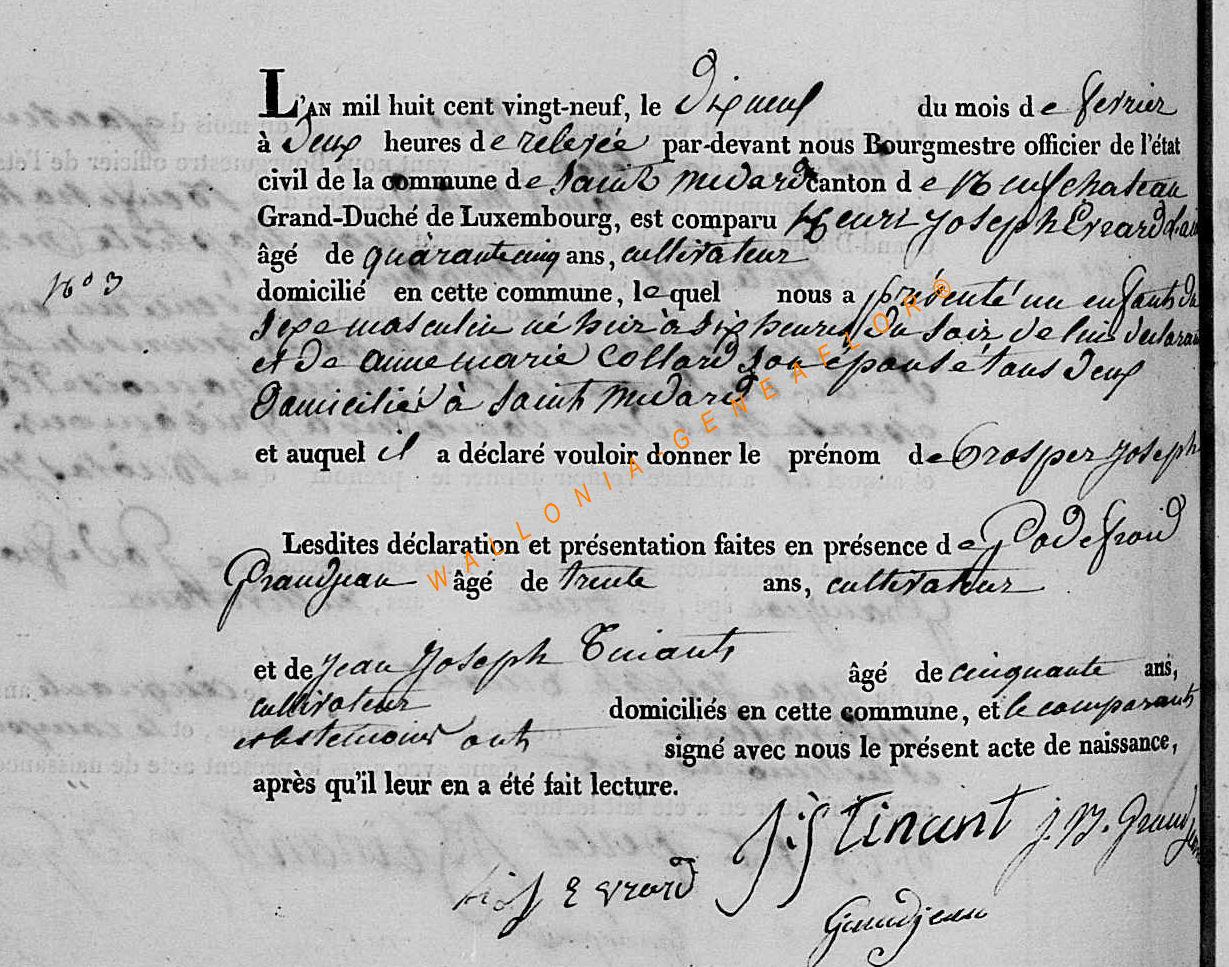 L'AN mil huit cent vingt-neuf, le Dix neuf du mois de fevrier
à Deux heures de relevée par-devant nous Bourgmestre officier de l'état
civil de la commune de Saint Medard canton de Neufchateau
Grand-Duché de Luxembourg, est comparu Henri Joseph Evrard
âgé de quarante cinq ans, cultivateur
N° 3
domicilié en cette commune, lequel nous a présenté un enfant du
Sexe masculin né hier à six heures du Soir de lui declarant
et de anne marie Collard Son épouse tous Deux
Domicilié à Saint Medard
et auquel il a déclaré vouloir donner le prénom de Prosper Joseph
Lesdites déclaration et présentation faites en présence de Godefroid
Grandjean âgé de trente ans, cultivateur
et de Jean Joseph Tinant âgé de cinquante ans,
cultivateur domiciliés en cette commune, et le comparant
et les temoins ont signé avec nous le présent acte de naissance,
après qu'il leur en a été fait lecture.
J: J Tinant J. B. Grandjean
h: J Evrard
Grandjean
WALLONIA-GENEAELOR®